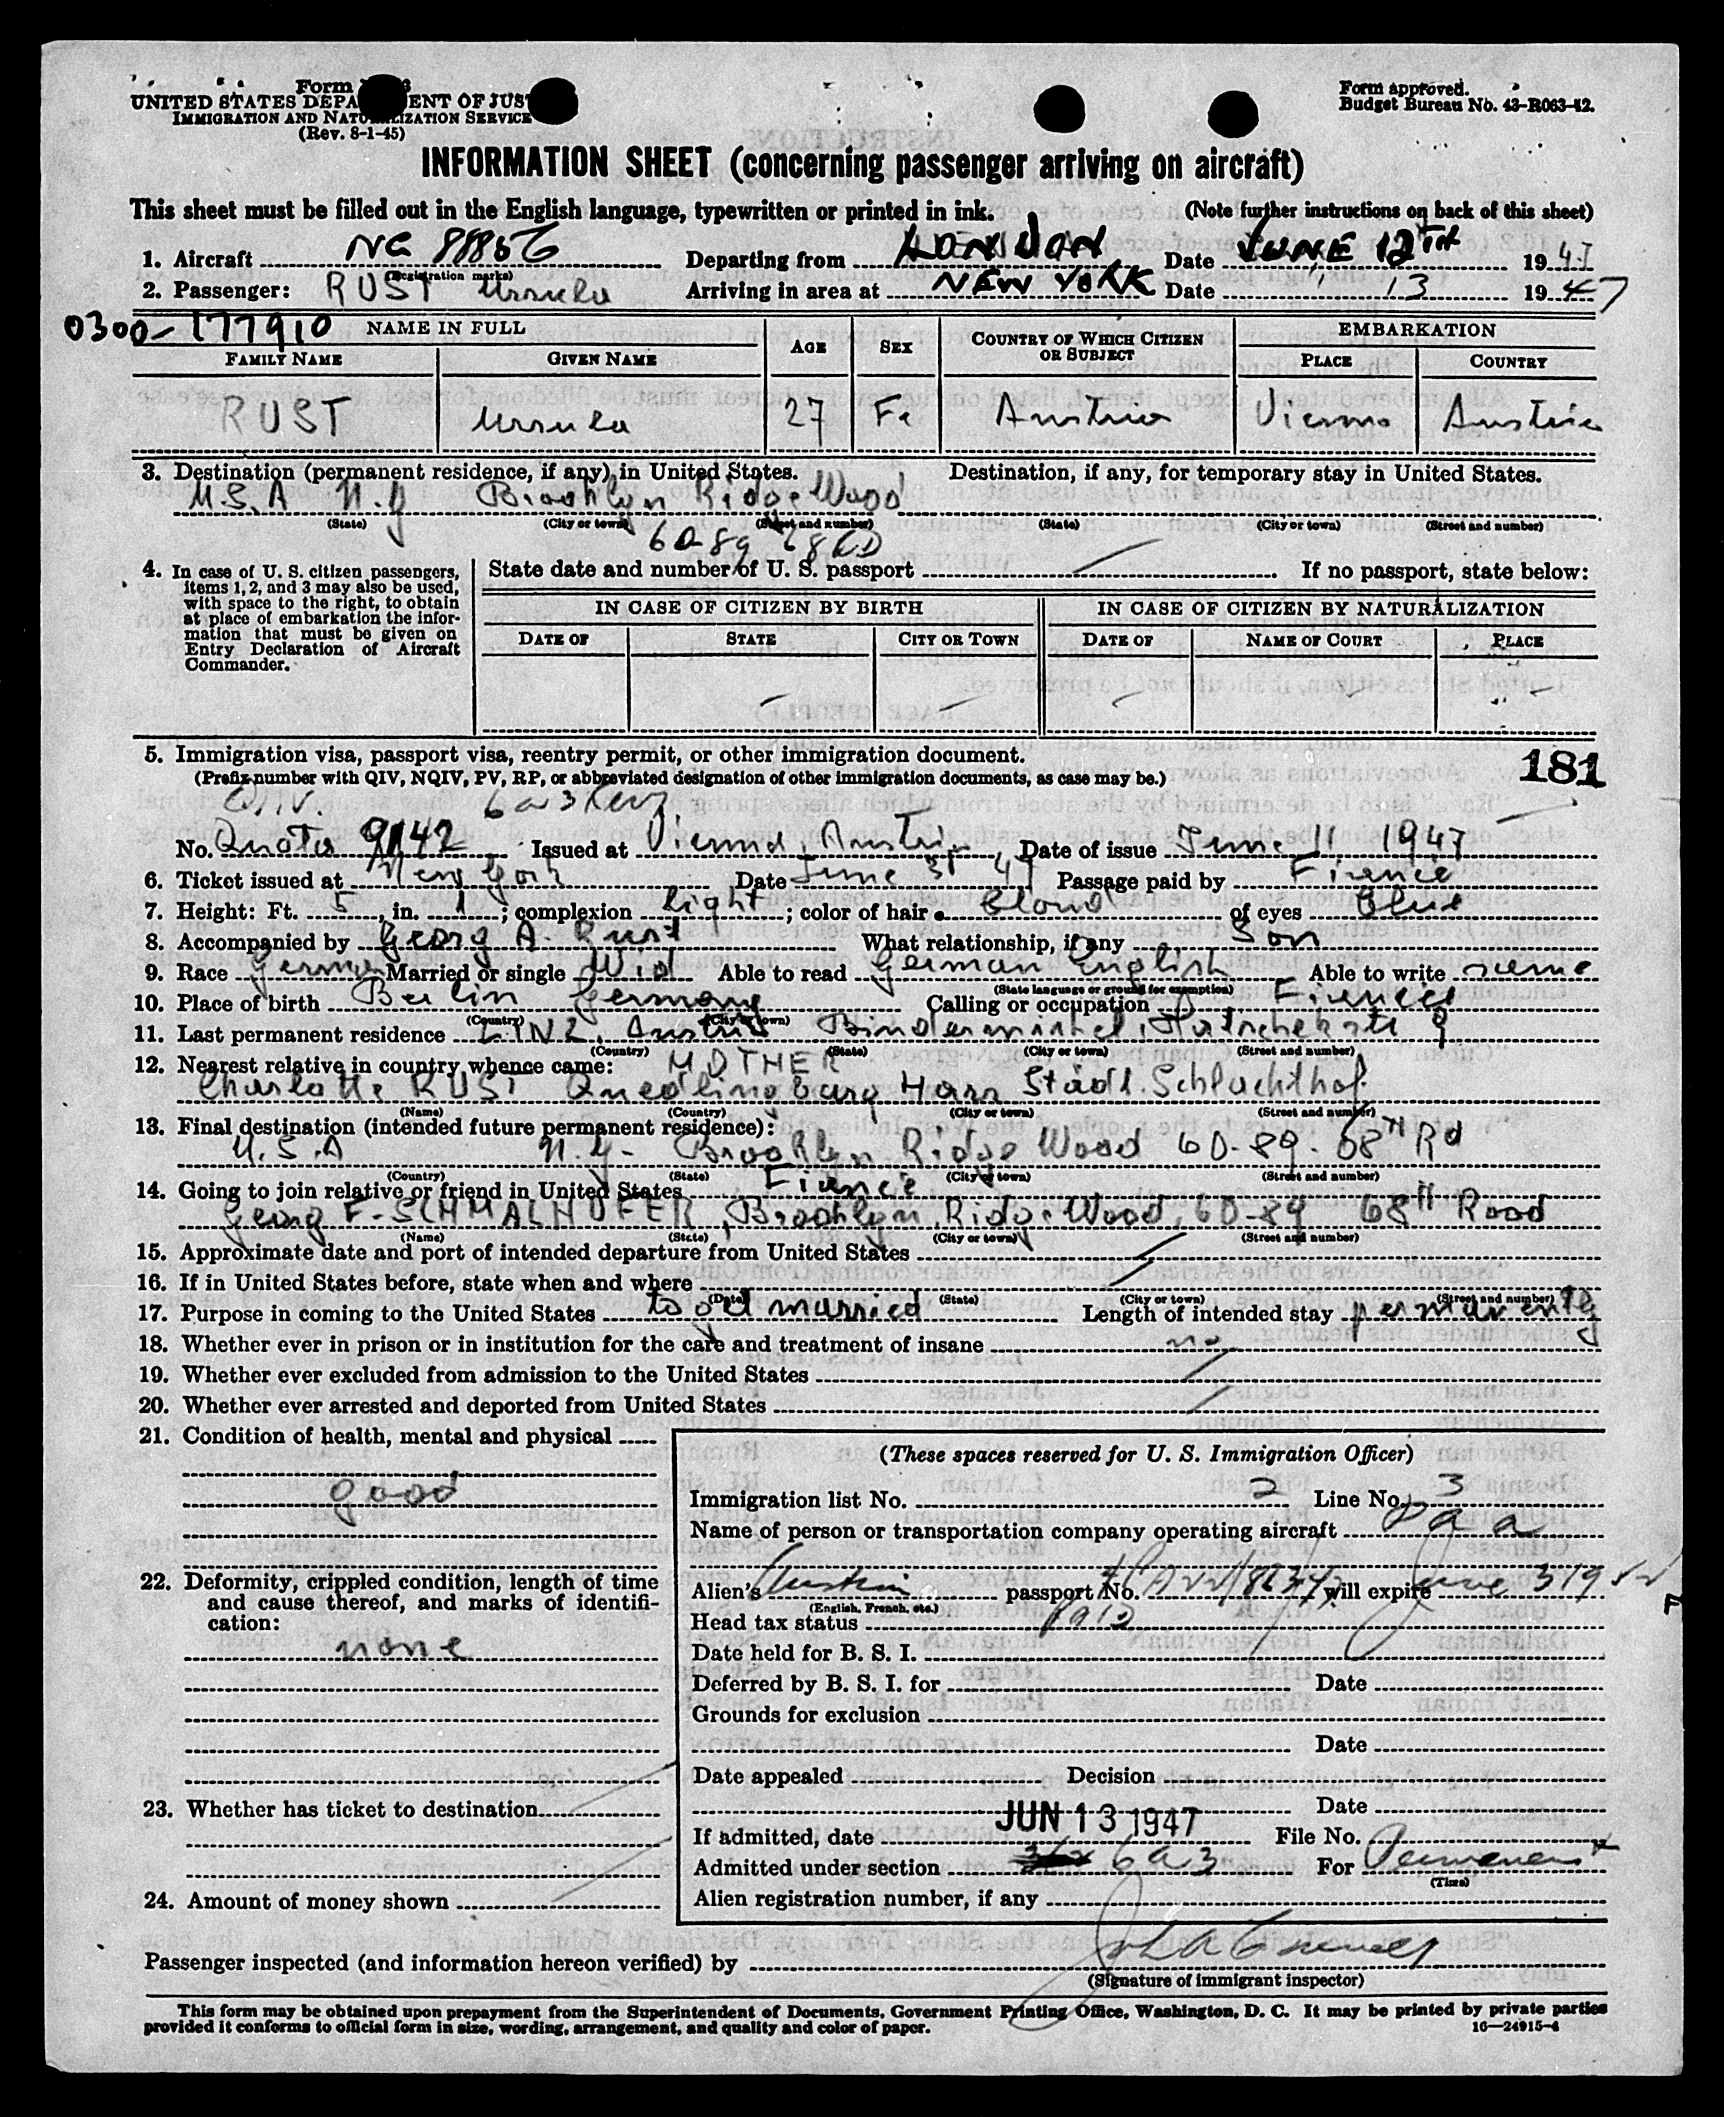 Form
UNITED STATES DEPA ENT OF JUS
IMMIGRATION AND NATURALIZATION SERVICE
(Rev. 8-1-45)
Form approved.
Budget Bureau No. 43-R063-42.
INFORMATION SHEET (concerning passenger arriving on aircraft)
This sheet must be filled out in the English language, typewritten or printed in ink. (Note further instructions on back of this sheet)
1. Aircraft NC 88856 Departing from LONDON Date JUNE 12TH 1947
(Registration marks)
2. Passenger: RUST Ursula Arriving in area at NEW YORK Date " 13 1947
0300-177910 NAME IN FULL AGE SEX COUNTRY OF WHICH CITIZEN OR SUBJECT EMBARKATION
FAMILY NAME GIVEN NAME PLACE COUNTRY
RUST Ursula 27 Fe Austria Vienna Austria
3. Destination (permanent residence, if any) in United States. Destination, if any, for temporary stay in United States.
U.S.A N.Y Brooklyn Ridge Wood
(State) (City or town) (Street and number) (State) (City or town) (Street and number)
60-89 68 RD
4. In case of U. S. citizen passengers, items 1, 2, and 3 may also be used, with space to the right, to obtain at place of embarkation the information that must be given on Entry Declaration of Aircraft Commander.
State date and number of U. S. passport If no passport, state below:
IN CASE OF CITIZEN BY BIRTH IN CASE OF CITIZEN BY NATURALIZATION
DATE OF STATE CITY OR TOWN DATE OF NAME OF COURT PLACE
5. Immigration visa, passport visa, reentry permit, or other immigration document. 181
(Prefix number with QIV, NQIV, PV, RP, or abbreviated designation of other immigration documents, as case may be.)
Q.I.V. 6a3
No. Quota 9142 Issued at Vienna, Austria Date of issue June 11 1947
6. Ticket issued at New York Date June 3 47 Passage paid by Fiancée
7. Height: Ft. 5, in. 1; complexion light; color of hair blond of eyes blue
8. Accompanied by Georg A. Rust What relationship, if any Son
9. Race German Married or single Wid Able to read German English Able to write same
(State language or ground for exemption)
10. Place of birth Berlin Germany Calling or occupation Fiancée
(Country) (City or town)
11. Last permanent residence LINZ, Austria Bindermichel, 9
(Country) (State) (City or town) (Street and number)
12. Nearest relative in country whence came: MOTHER
Charlotte RUST Quedlingburg Harz Städt. Schlachthof
(Name) (Country) (City or town) (Street and number)
13. Final destination (intended future permanent residence):
U.S.A N.Y- Brooklyn Ridge Wood 60-89. 68TH Rd
(Country) (State) (City or town) (Street and number)
14. Going to join relative or friend in United States Fiancée
Georg F-SCHMALHOFER, Brooklyn, Ridge Wood, 60-89 68TH Road
(Name) (State) (City or town) (Street and number)
15. Approximate date and port of intended departure from United States
16. If in United States before, state when and where
(Date) (State) (City or town) (Street and number)
17. Purpose in coming to the United States to get married Length of intended stay permanently
18. Whether ever in prison or in institution for the care and treatment of insane no
19. Whether ever excluded from admission to the United States
20. Whether ever arrested and deported from United States
21. Condition of health, mental and physical
good
22. Deformity, crippled condition, length of time and cause thereof, and marks of identification:
none
23. Whether has ticket to destination
24. Amount of money shown
(These spaces reserved for U. S. Immigration Officer)
Immigration list No. 2 Line No. 3
Name of person or transportation company operating aircraft Paa
Alien's Austrian passport No. will expire June 3 1952
(English, French, etc.)
F
Head tax status Paid
Date held for B. S. I.
Deferred by B. S. I. for Date
Grounds for exclusion
Date
Date appealed Decision
Date
If admitted, date JUN 13 1947 File No.
Admitted under section 6a3 For Permanent
(Time)
Alien registration number, if any
Passenger inspected (and information hereon verified) by
(Signature of immigrant inspector)
This form may be obtained upon prepayment from the Superintendent of Documents, Government Printing Office, Washington, D. C. It may be printed by private parties
provided it conforms to official form in size, wording, arrangement, and quality and color of paper. 16—24915-4